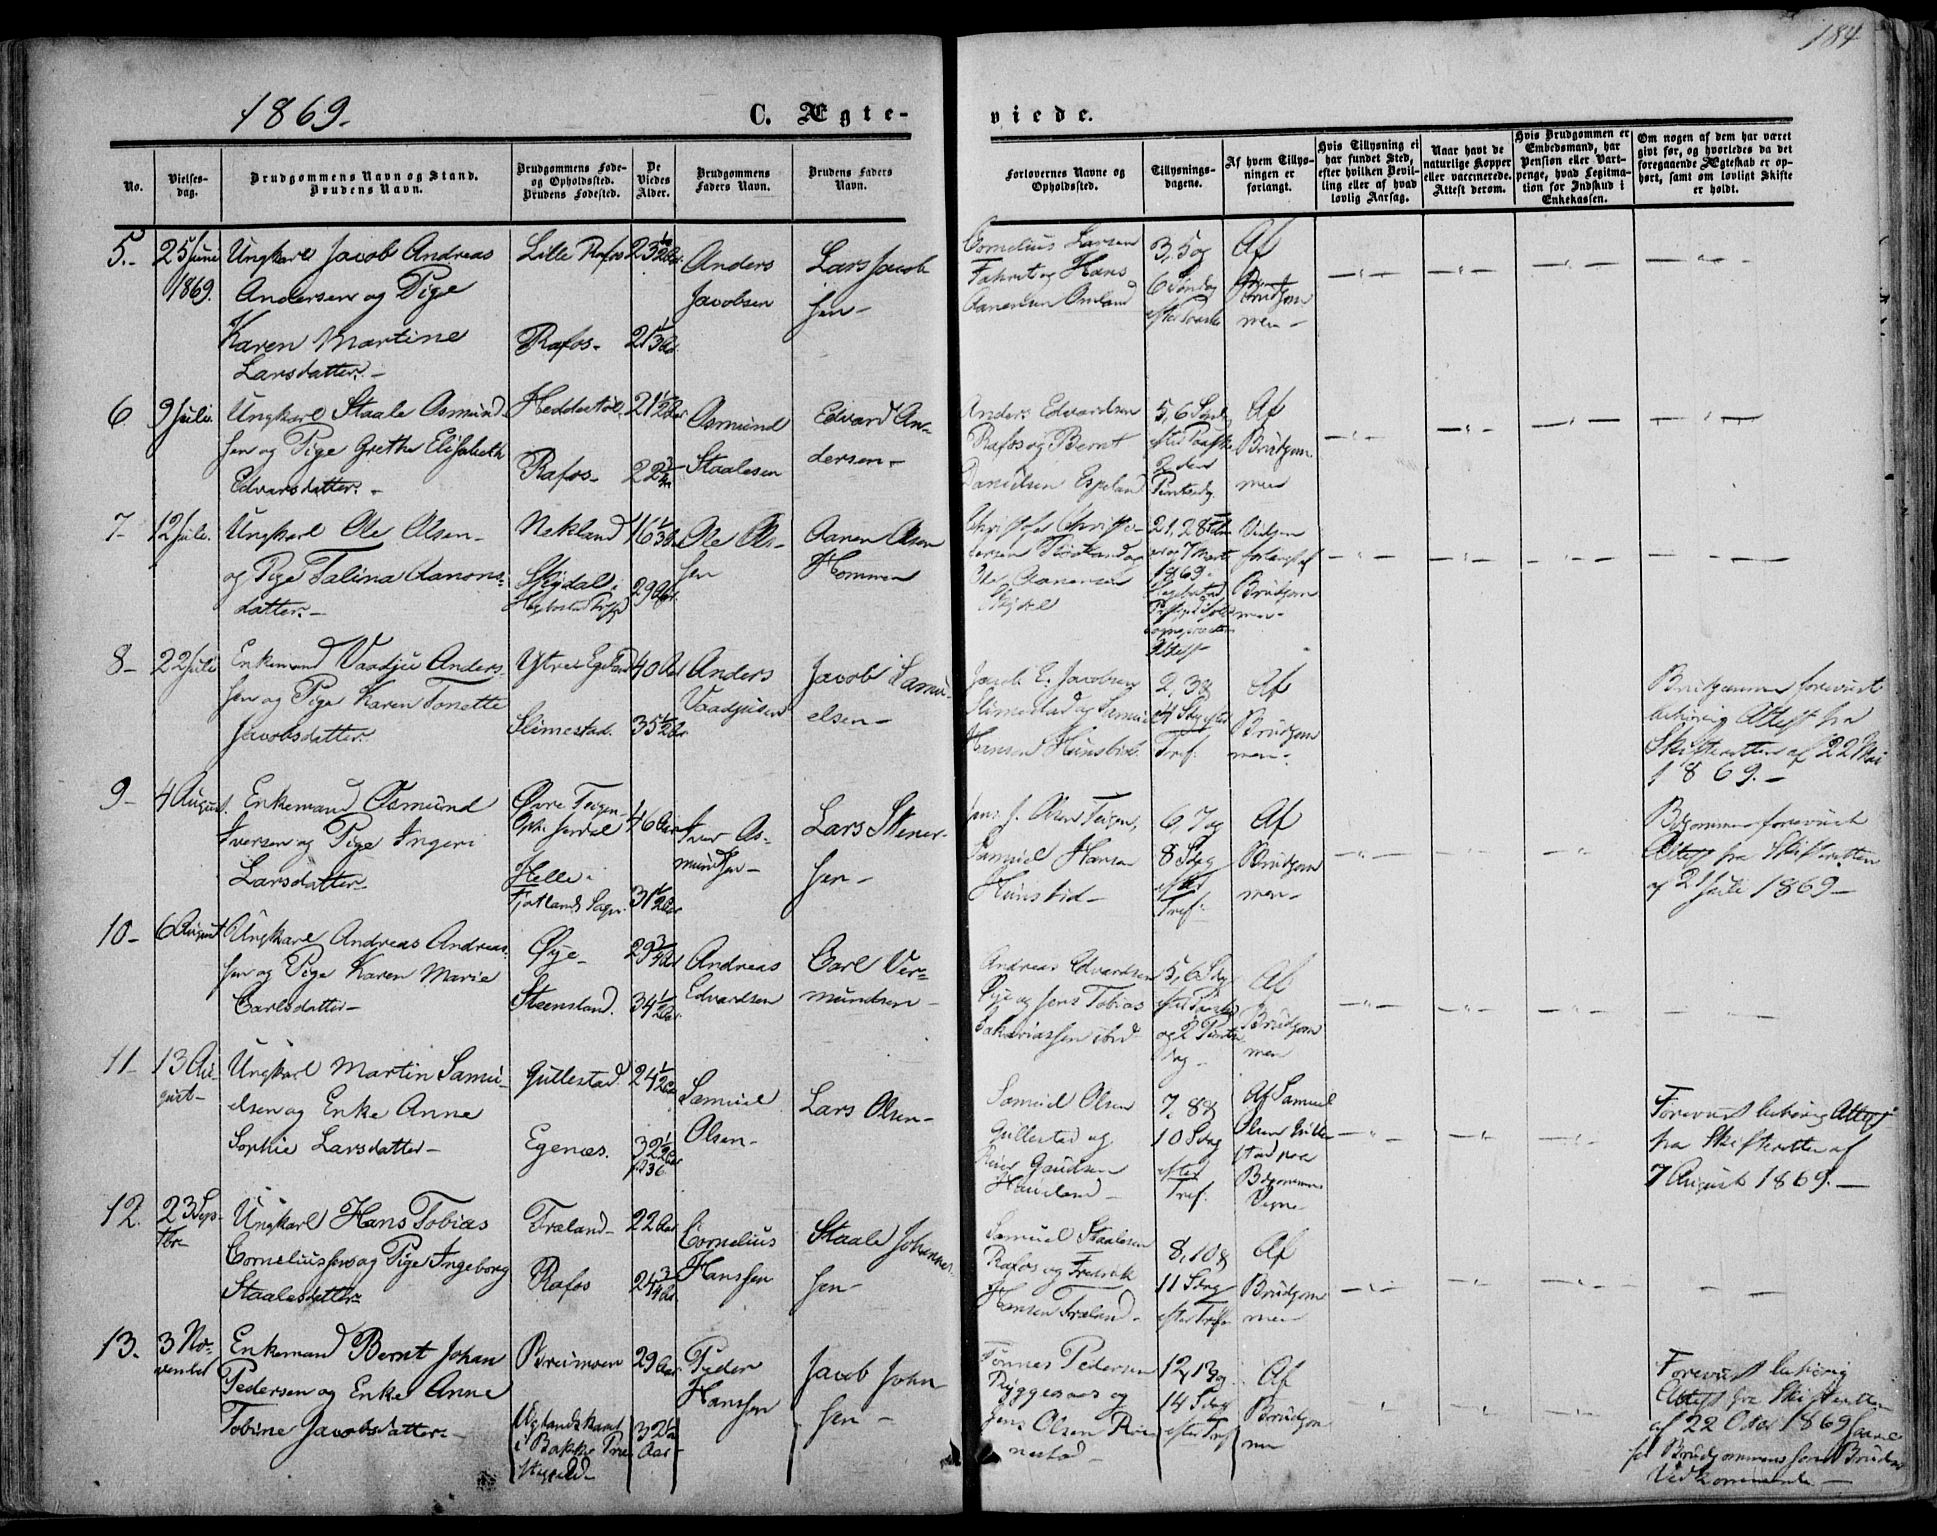 184
1869.
C. Ægte-
viede.
No.
Vielses-
dag.
Brudgommens Navn og Stand.
Brudens Navn.
Brudgommens Føde-
og Opholdssted.
Brudens Fødested.
De
Viedes
Alder.
Brudgommens
Faders Navn.
Brudens Faders
Navn.
Forlovernes Navne og
Opholdssted.
Tillysnings-
dagene.
Af hvem Tillys-
ningen er
forlangt.
Hvis Tillysning ei
har fundet Sted,
efter hvilken Bevil-
ling eller af hvad
lovlig Aarsag.
Naar havt de
naturlige Kopper
eller vaccinerede.
Attest derom.
Hvis Brudgommen er
Embedsmand, har
Pension eller Vart-
penge, hvad Legitma-
tion for Indskud i
Enkekassen.
Om nogen af dem har været
givt før, og hvorledes da det
foregaaende Ægteskab er op-
hørt, samt om lovligt Skifte
er holdt.
5.-
25 Juni
1869.
Ungkarl Jacob Andreas
Andersen og Pige
Karen Martine
Larsdatter.-
Lille Rafos
Rafos-
Anders
Jacobsen
Lars Jacob
sen-
Cornelius Larsen
og Hans
Aanensen Omland
3, 5 og
6 Søndag
efter Paaske
Af
Brudgom
men-
6
9 Juli.
Ungkarl Staale Osmund
sen og Pige Grethe Elisabeth
Edvarsdatter.-
Rafos-
Osmund
Staalesen
Edvard An-
dersen-
Anders Edvardsen
Rafos og Bernt
Danielsen Espeland
5, 6 Sdg
efter Paaske
2den
Pintsedg.
Af
Brudgom
men
7-
12 Juli.
Ungkarl Ole Olsen-
og Pige Talina Aanons-
datter.-
Nekland
Ole Ol-
sen
Aanen Olsen
Hommen
Ole Aanensen
21, 28
og 7 Marts
1869.
Attest
Brudgom
men-
8-
22 Juli
Enkemand Vaadju Anders-
sen og Pige Karen Tonette
Jacobsdatter.
Ytre Egeland
Slimestad.
40 Aar
35½ Aar
Anders
Vaadjusen
Jacob Samu-
elsen-
Jacob E. Jacobsen
Slimestad og Samuel
Hansen Hunsbid.
2, 3 &
4 Sdg efter
Tref.
Af
Brudgom
men-
Brudgommen forevist
behørig Attest fra
Skifteretten af 22 Mai
1869.-
9-
4 August.
Enkemand Osmund
Iversen og Pige Ingeri
Larsdatter.
Øvre Teigen
Helle i
Fjotlands Sogn.
46 Aar
31½ Aar
Iver Os-
mundsen-
Lars Stener-
sen-
Jens J. Olsen Teigen,
Samuel Hansen
Hunsbid-
6, 7 og
8 Sdg
efter
Tref.
Af
Brudgom
men-
Bdgommen forevist
Attest fra Skifteretten
af 2 Juli 1869-
10-
6 August
Ungkarl Andreas Andreas-
sen og Pige Karen Marie
Carlsdatter-
Øye-
Steensland.
29¾ Aar
34½ Aar
Andreas
Edvardsen
Carl Ver-
mundsen-
Andreas Edvardsen
Øye og Jens Tobias
Sakariassen ibid
5, 6 Sdg
efter Paaske
og 2 Pintse
dag-
Af
Brudgom
men
11-
13 Au-
gust-
Ungkarl Martin Samu-
elsen og Enke Anne
Sophie Larsdatter-
Gullestad
Egenæs.
24½ Aar
32½ Aar
Samuel
Olsen-
Lars Olsen-
Samuel Olsen
Gullestad og
Haueland-
7, 8 &
10 Sdg
efter
Tref.
Af Samuel
Olsen Gulle
stad paa
Bdgommens
Vegne-
Forevist behørig Attest
fra Skifteretten af
7 August 1869.-
12.
23 Sep-
tbr-
Ungkarl Hans Tobias
Corneliussen og Pige Ingeborg
Staalesdatter-
Træland-
Rafos
22 Aar
24¾ Aar.
Cornelius
Hanssen
Staale Johannes-
sen-
Samuel Staalesen
Rafos og Fredrik
Hansen Træland-
8, 10 &
11 Sdag
efter Tref.
Af
Brudgom
men
13.
3 No-
vember
Enkemand Bernt Johan
Pedersen og Enke Anne
Tobine Jacobsdatter.-
Breimoen
i Bakke Præ
stegjeld-
29 Aar
32½
Aar-
Peder
Hanssen
Jacob John
sen-
Tønnes Pedersen
Ryggesaas og
Jens Olsen
12, 13 og
14 Sdag
efter Tref
Af
Brudgom
men
Forevist behørig
Attest fra Skifteretten
af 22 Octbr 1869 saavel
for Brudgommens som Brudens
Vedkommende-